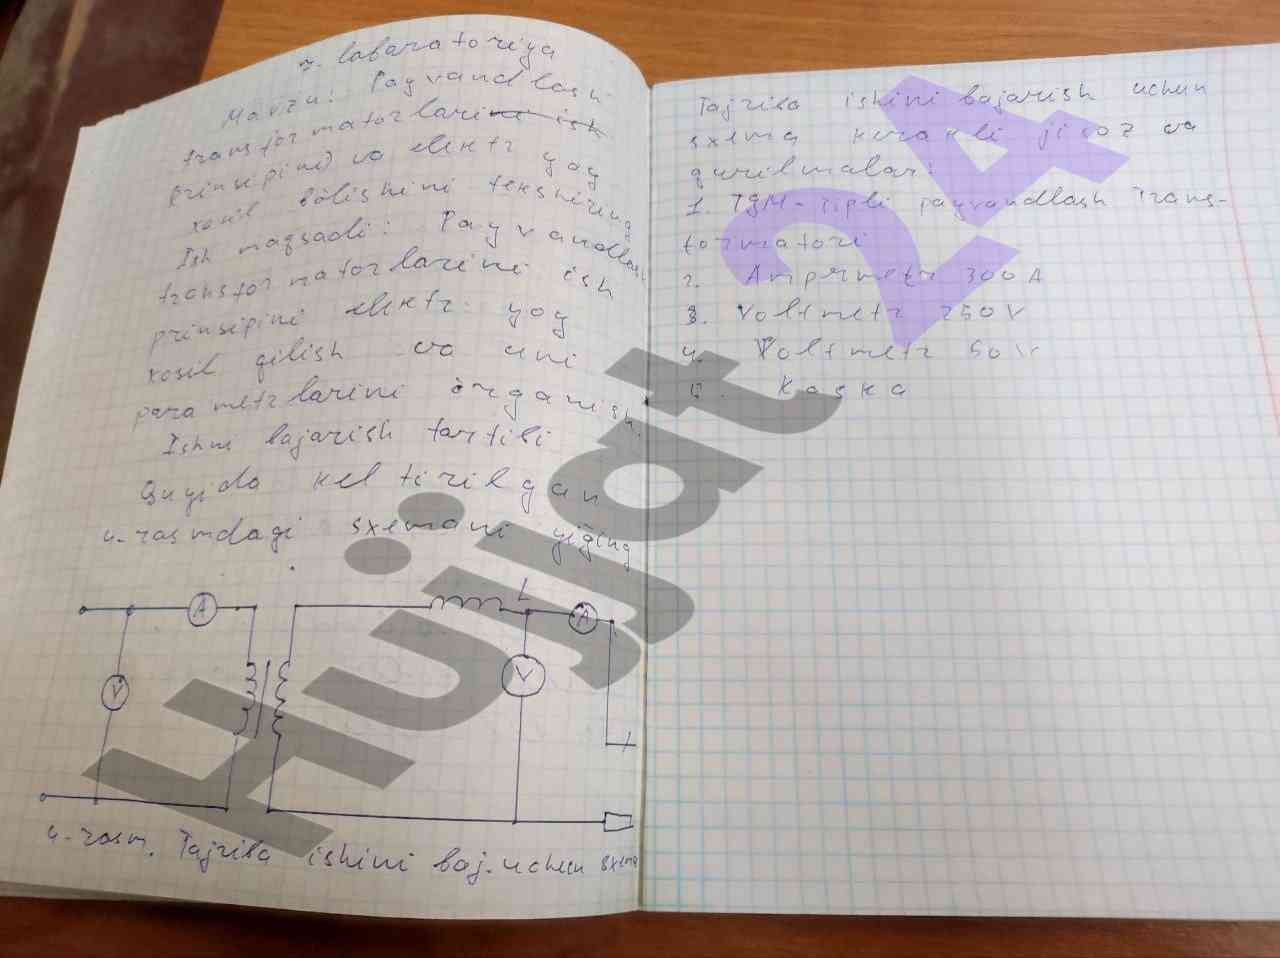 7. labaratoriya
Mavzu: Payvandlash
transformatorlarini ish
prinsipini va elektr yoy
xosil bölishini tekshiring
Ish maqsadi: Payvandlash
transformatorlarini ish
prinsipini elektr yoy
xosil qilish va uni
parametrlarini örganish.
Ishni bajarish tartibi
Quyida keltirilgan
4-rasmdagi sxemani yiğing
L
A
A
V
V
4-rasm. Tajriba ishini baj. uchun sxema
Tajriba ishini bajarish uchun
sxema kerakli jixoz va
qurilmalar:
tipli payvandlash trans-
formatori
2. Ampermetr 300 A
3. Voltmetr 250 V
4. Voltmetr 50 V
5. Kaska
Hujjat 24